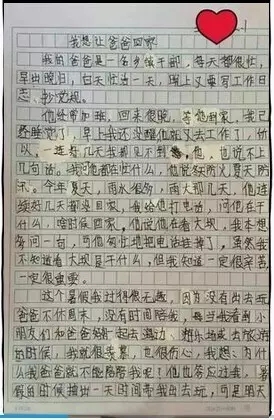 我想让爸爸回家
我的爸爸是一名乡镇干部，每天都很忙，
早出晚归，白天忙活一天，晚上又要写工作日
志、抄党规。
他经常加班，回来很晚，等他到家，我已
经睡觉了，早上我还没醒他就又去工作了，所
以，一连好几天我都见不到他，也说不上
几句话。我问他都在忙什么，他说扶贫又夏天防
汛。今年夏天，雨水很多，雨大那几天，他连
续好几天都没回家，我给他打电话，问他在干
什么，啥时候回家，他说他在看大坝，我本想
多问一句，可他匆忙地把电话挂掉了，虽然我
不知道看大坝是干什么，但我知道一定很辛苦
一定很重要。
这个暑假我过得很无趣，因为没有出去玩
爸爸不休周末，没有时间陪我，每当我看到小
朋友们和爸爸妈妈一起去海边、游乐场或去旅游
的时候，我就很羡慕，也很伤心，我想：为什
么我爸爸就不能陪陪我呢？他也答应过我，暑
假的时候抽出一天时间带我出去玩，可是明天